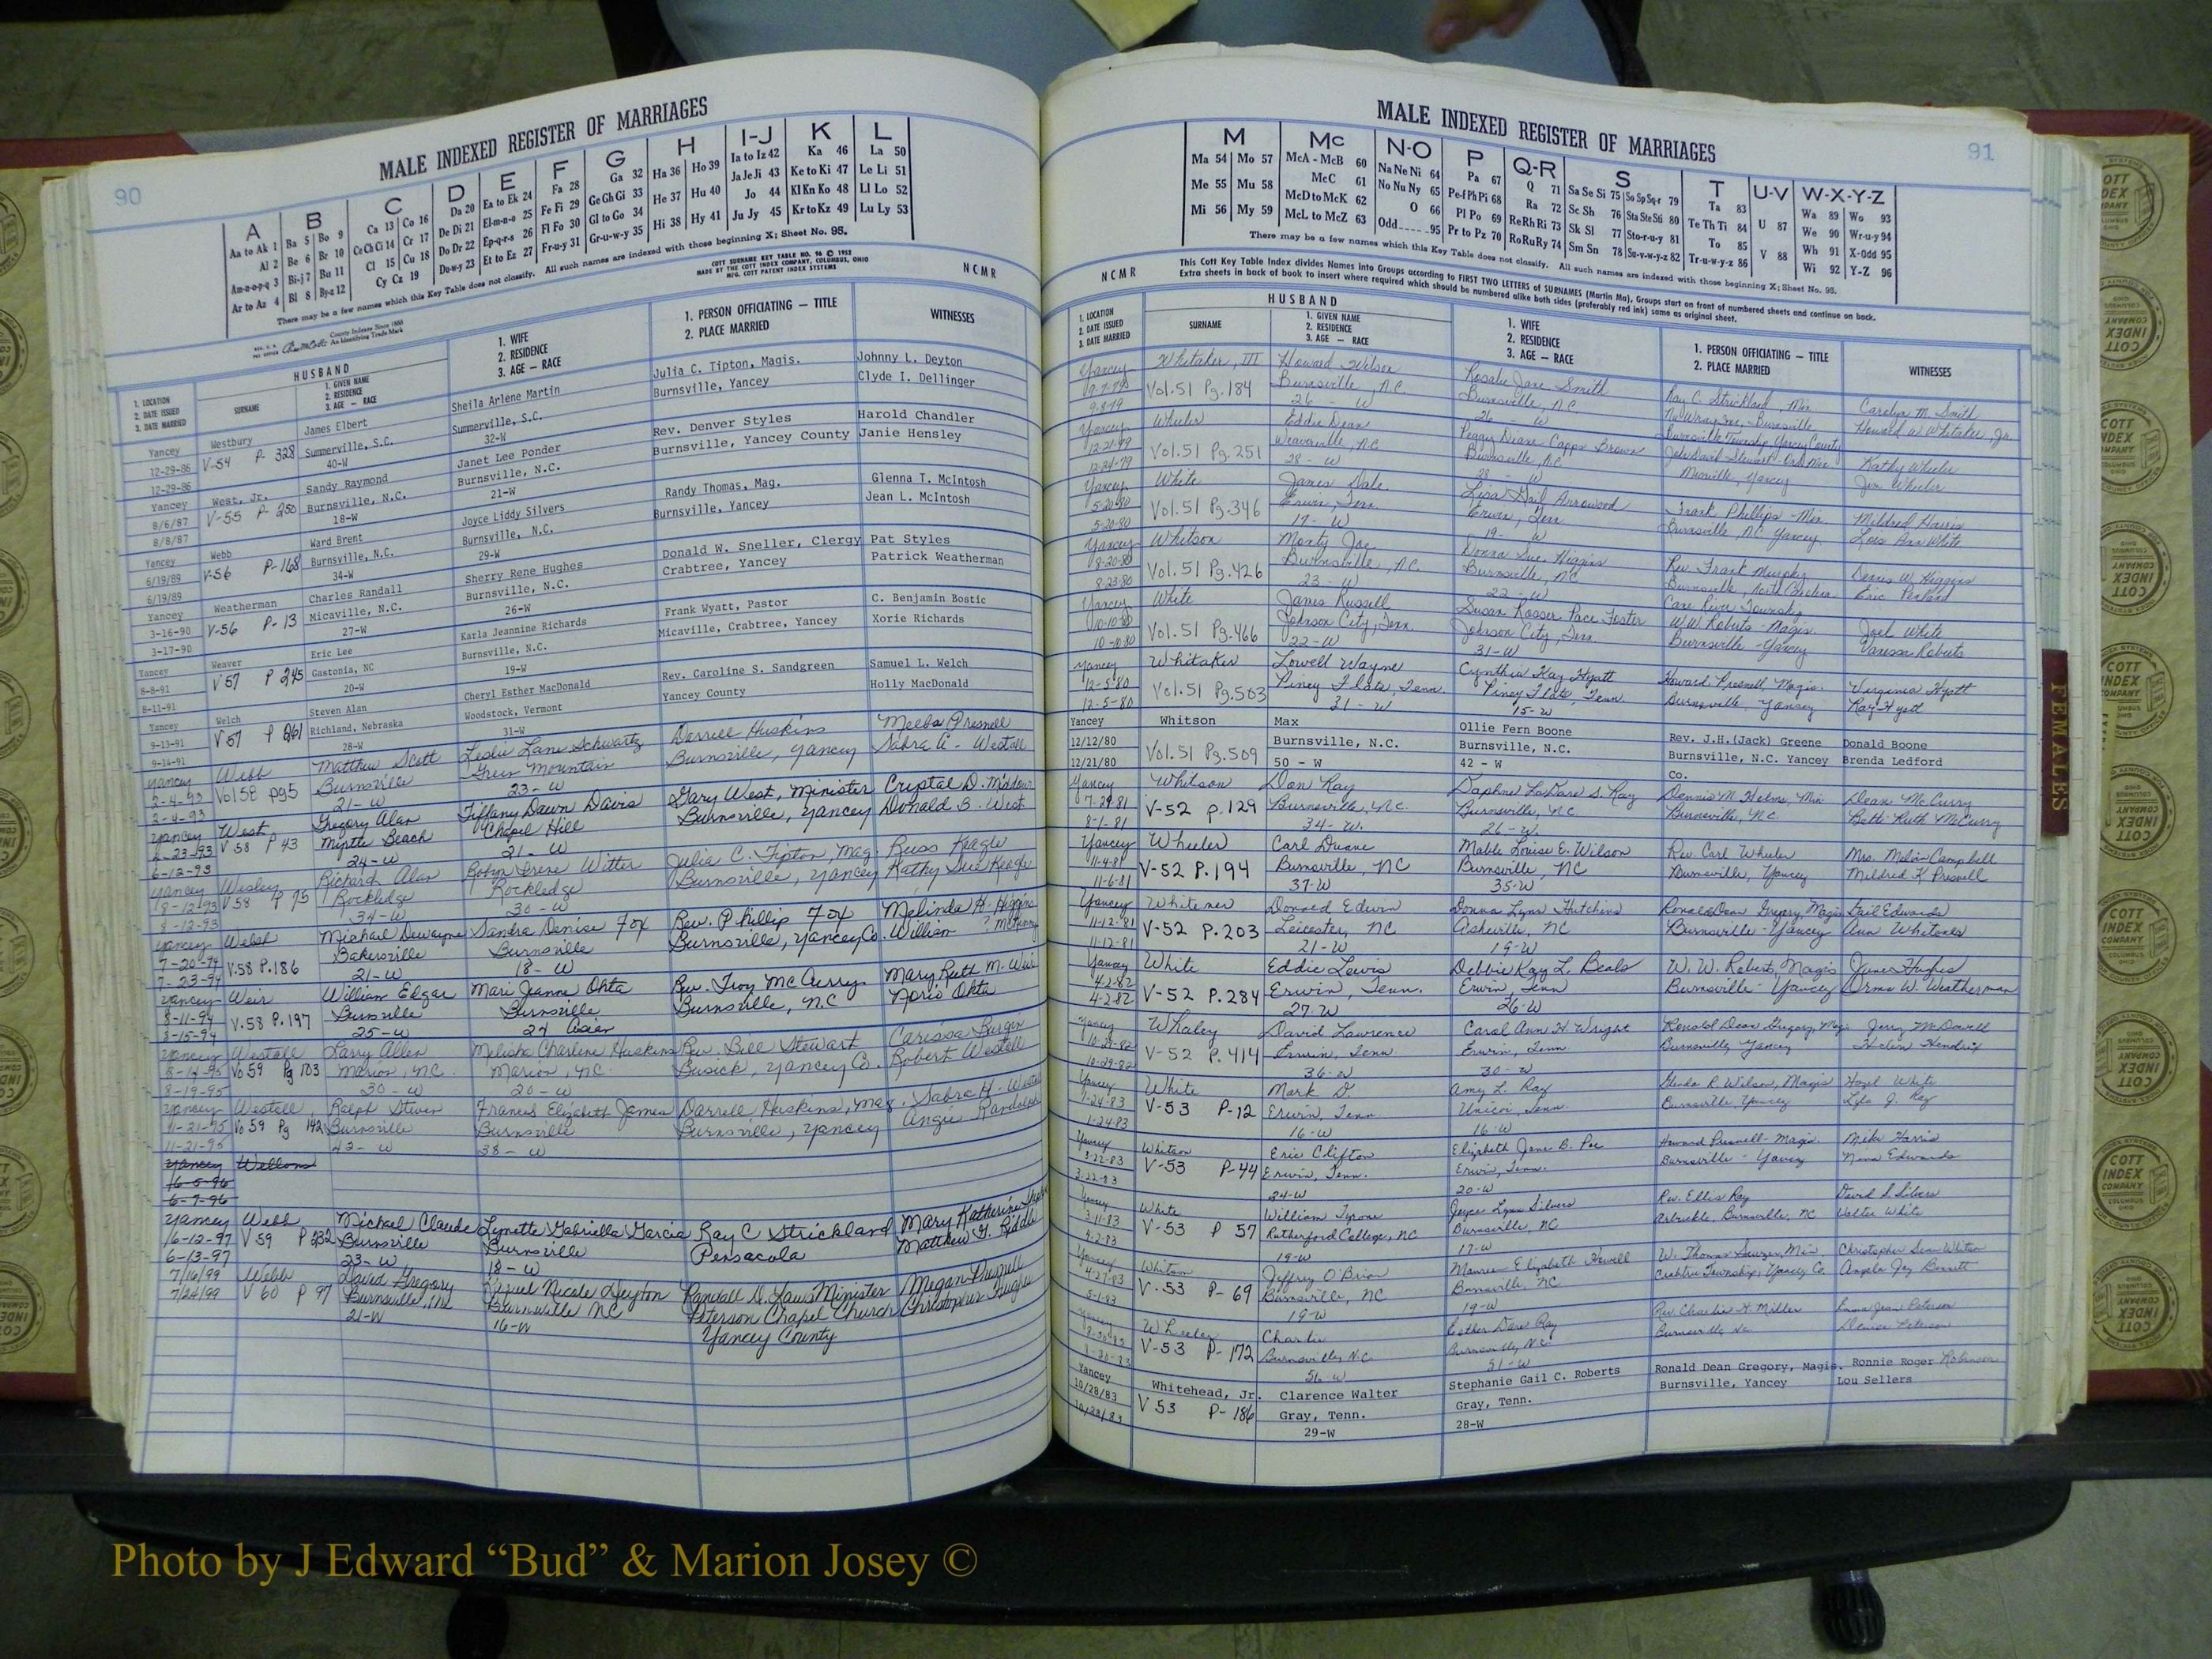 90
MALE INDEXED REGISTER OF MARRIAGES
A B C D E F G H I-J K L
Aa to Ak 1 Ba 5 Bo 9 Ca 13 Co 16 Da 20 Ea to Ek 24 Fa 28 Ga 32 Ha 36 Ho 39 Ia to Iz 42 Ka 46 La 50
Al 2 Be 6 Br 10 Ce Ch Ci 14 Cr 17 De Di 21 El-m-n-o 25 Fe Fi 29 Ge Gh Gi 33 He 37 Hu 40 Ja Je Ji 43 Ke to Ki 47 Le Li 51
Am-n-o-p-q 3 Bi-j 7 Bu 11 Cl 15 Cu 18 Do Dr 22 Ep-q-r-s 26 Fl Fo 30 Gl to Go 34 Hi 38 Hy 41 Jo 44 Kl Kn Ko 48 Ll Lo 52
Ar to Az 4 Bl 8 By-z 12 Cy Cz 19 Du-w-y 23 Et to Ez 27 Fr-u-y 31 Gr-u-w-y 35 Ju Jy 45 Kr to Kz 49 Lu Ly 53
There may be a few names which this Key Table does not classify. All such names are indexed with those beginning X; Sheet No. 95.
County Indexes Since 1888
An Identifying Trade Mark
COTT SURNAME KEY TABLE NO. 96 © 1952
MADE BY THE COTT INDEX COMPANY, COLUMBUS, OHIO
MFG. COTT PATENT INDEX SYSTEMS
NCMR
1. LOCATION
2. DATE ISSUED
3. DATE MARRIED
HUSBAND
SURNAME
1. GIVEN NAME
2. RESIDENCE
3. AGE — RACE
1. WIFE
2. RESIDENCE
3. AGE — RACE
1. PERSON OFFICIATING — TITLE
2. PLACE MARRIED
WITNESSES
Yancey Westbury James Elbert Sheila Arlene Martin Julia C. Tipton, Magis. Johnny L. Deyton
12-29-86 V-54 P- 328 Summerville, S.C. Summerville, S.C. Burnsville, Yancey Clyde I. Dellinger
12-29-86 40-W 32-W
Yancey West, Jr. Sandy Raymond Janet Lee Ponder Rev. Denver Styles Harold Chandler
8/6/87 V-55 P- 250 Burnsville, N.C. Burnsville, N.C. Burnsville, Yancey County Janie Hensley
8/8/87 18-W 21-W
Yancey Webb Ward Brent Joyce Liddy Silvers Randy Thomas, Mag. Glenna T. McIntosh
6/19/89 V-56 P-168 Burnsville, N.C. Burnsville, N.C. Burnsville, Yancey Jean L. McIntosh
6/19/89 34-W 29-W
Yancey Weatherman Charles Randall Sherry Rene Hughes Donald W. Sneller, Clergy Pat Styles
3-16-90 V-56 P- 13 Micaville, N.C. Burnsville, N.C. Crabtree, Yancey Patrick Weatherman
3-17-90 27-W 26-W
Yancey Weaver Eric Lee Karla Jeannine Richards Frank Wyatt, Pastor C. Benjamin Bostic
8-8-91 V 57 P 245 Gastonia, NC Burnsville, N.C. Micaville, Crabtree, Yancey Xorie Richards
8-11-91 20-W 19-W
Yancey Welch Steven Alan Cheryl Esther MacDonald Rev. Caroline S. Sandgreen Samuel L. Welch
9-13-91 V 57 P 261 Richland, Nebraska Woodstock, Vermont Yancey County Holly MacDonald
9-14-91 28-W 31-W
Yancey Webb Matthew Scott Leslie Lane Schwartz Darrell Huskins Melba Presnell
2-4-93 Vol 58 pg5 Burnsville Green Mountain Burnsville, Yancey Sabra A. Westall
2-4-93 21-W 23-W
Yancey West Gregory Alan Tiffany Dawn Davis Gary West, Minister Crystal D.
V 58 P 43 Myrtle Beach Chapel Hill Burnsville, Yancey Donald B. West
6-12-93 24-W 21-W
Yancey Wesley Richard Alan Robyn Irene Witter Julia C. Tipton, Mag. Russ Keagle
8-12-93 V 58 P 75 Rockledge Rockledge Burnsville, Yancey Kathy Sue Keagle
8-12-93 34-W 30-W
Yancey Webb Michael Dewayne Sandra Denise Fox Rev. Phillip Fox Melinda H. Higgins
7-20-94 V.58 P.186 Bakersville Burnsville Burnsville, Yancey Co. William
7-23-94 21-W 18-W
Yancey Weir William Edgar Mari Jeanne Ohta Rev. Troy McCurry Mary Ruth M. Weir
8-11-94 V.58 P.197 Burnsville Burnsville Burnsville, N.C Norio Ohta
8-15-94 25-W 24 Asian
Yancey Westall Larry Allen Melisha Charlene Huskins Rev. Bill Stewart Carissa Burgin
Vo 59 Pg 103 Marion, NC. Marion, NC. Busick, Yancey Co. Robert Westall
8-19-95 30-W 20-W
Yancey Westall Ralph Steven Frances Elizabeth James Darrell Huskins, Mag. Sabra H. Westall
11-21-95 Vo 59 Pg 142 Burnsville Burnsville Burnsville, Yancey Angie Randolph
11-21-95 42-W 38-W
Yancey Wellons
6-5-96
6-7-96
Yancey Webb Michael Claude Lynette Gabriella Garcia Ray C Strickland Mary Katherine
6-12-97 V 59 P 232 Burnsville Burnsville Pensacola Matthew G. Riddle
6-13-97 23-W 18-W
7/16/99 Webb David Gregory Raquel Nicole Deyton Randall D. Laws Minister Megan Presnell
7/24/99 V 60 P 97 Burnsville, NC Burnsville NC Peterson Chapel Church Christopher Hughes
21-W 16-W Yancey County
91
MALE INDEXED REGISTER OF MARRIAGES
M Mc N-O P Q-R S T U-V W-X-Y-Z
Ma 54 Mo 57 McA - McB 60 Na Ne Ni 64 Pa 67 Q 71 Sa Se Si 75 So Sp Sq-r 79 Ta 83 U 87 Wa 89 Wo 93
Me 55 Mu 58 McC 61 No Nu Ny 65 Pe-f Ph Pi 68 Ra 72 Sc Sh 76 Sta Ste Sti 80 Te Th Ti 84 V 88 We 90 Wr-u-y 94
Mi 56 My 59 McD to McK 62 O 66 Pl Po 69 Re Rh Ri 73 Sk Sl 77 Sto-r-u-y 81 To 85 Wh 91 X-Odd 95
McL to McZ 63 Odd 95 Pr to Pz 70 Ro Ru Ry 74 Sm Sn 78 Su-v-w-y-z 82 Tr-u-w-y-z 86 Wi 92 Y-Z 96
There may be a few names which this Key Table does not classify. All such names are indexed with those beginning X; Sheet No. 95.
NCMR
This Cott Key Table Index divides Names into Groups according to FIRST TWO LETTERS of SURNAMES (Martin Ma), Groups start on front of numbered sheets and continue on back.
Extra sheets in back of book to insert where required which should be numbered alike both sides (preferably red ink) same as original sheet.
1. LOCATION
2. DATE ISSUED
3. DATE MARRIED
HUSBAND
SURNAME
1. GIVEN NAME
2. RESIDENCE
3. AGE — RACE
1. WIFE
2. RESIDENCE
3. AGE — RACE
1. PERSON OFFICIATING — TITLE
2. PLACE MARRIED
WITNESSES
Yancey Whitaker, III Howard Wilson Rosalie Jane Smith Ray C. Strickland, Min Carolyn M. Smith
9-7-79 Vol.51 Pg.184 Burnsville, NC Burnsville, NC Howard W. Whitaker, Jr.
9-8-79 26 - W 26 - W Burnsville Township, Yancey County
Yancey Wheeler Eddie Dean Peggy Diane Capps Brown Kathy Wheeler
12-21-79 Vol.51 Pg.251 Weaverville, NC Burnsville, NC Micaville, Yancey Jim Wheeler
12-24-79 28 - W 28 - W
Yancey White James Dale Lisa Gail Arrowood Frank Phillips - Min Mildred Harris
5-20-80 Vol.51 Pg.346 Erwin, Tenn Erwin, Tenn Burnsville, NC Yancey Lois Ann White
5-20-80 19- W
Yancey Whitson Monty Joe Donna Sue Higgins Rev. Frank Murphy Dennis W. Higgins
8-20-80 Vol.51 Pg.426 Burnsville, NC Burnsville, NC Burnsville, North Carolina Eric Penland
8-23-80 23 - W 22 - W Cane River Township
Yancey White James Russell Susan Rosser Pace Foster W.W. Roberts - Magis. Joel White
10-10-80 Vol.51 Pg.466 Johnson City, Tenn. Johnson City, Tenn. Burnsville - Yancey Vanessa Roberts
10-10-80 22-W 31-W
Yancey Whitaker Lowell Wayne Cynthia Kay Hyatt Howard Presnell, Magis. Virginia Hyatt
12-5-80 Vol.51 Pg.503 Piney Flats, Tenn. Piney Flats, Tenn. Burnsville, Yancey Ray Hyatt
12-5-80 21 - W 15-W
Yancey Whitson Max Ollie Fern Boone Rev. J.H.(Jack) Greene Donald Boone
12/12/80 Vol.51 Pg.509 Burnsville, N.C. Burnsville, N.C. Burnsville, N.C. Yancey Brenda Ledford
12/21/80 50 - W 42 - W Co.
Yancey Whitson Dan Ray Daphne LaDare S. Ray Dennis M. Helms, Min Dean McCurry
7-29-81 V-52 p.129 Burnsville, NC. Burnsville, NC Burnsville, NC. Bette Ruth McCurry
8-1-81 34-W. 26-W.
Yancey Wheeler Carl Duane Mable Louise E. Wilson Rev. Carl Wheeler Mrs. Melvin Campbell
11-4-81 V-52 P.194 Burnsville, NC Burnsville, NC Burnsville, Yancey Mildred K Presnell
11-6-81 37-W 35-W
Yancey Whitener Donald Edwin Donna Lynn Hutchins Ronald Dean Gregory, Magis Gail Edwards
11-12-81 V-52 P.203 Leicester, NC Asheville, NC Burnsville - Yancey Ann Whitener
11-12-81 21-W 19-W
Yancey White Eddie Lewis Debbie Kay L. Beals W. W. Roberts, Magis June Hughes
4-2-82 V-52 P.284 Erwin, Tenn. Erwin, Tenn Burnsville - Yancey Orma W. Weatherman
4-2-82 27-W 26-W
Yancey Whaley David Lawrence Carol Ann H. Wright Ronald Dean Gregory, Magis Jerry McDowell
10-29-82 V-52 P.414 Erwin, Tenn Erwin, Tenn Burnsville, Yancey Helen Hendrix
10-29-82 36-W 30-W
Yancey White Mark D. Amy L. Ray Glenda R. Wilson, Magis Hazel White
1-24-83 V-53 P-12 Erwin, Tenn Unicoi, Tenn. Burnsville, Yancey Lyla J. Ray
1-24-83 16-W 16-W
Yancey Whitson Eric Clifton Elizabeth Jane B. Poe Howard Presnell - Magis. Mike Harris
3-22-83 V-53 P-44 Erwin, Tenn. Erwin, Tenn. Burnsville - Yancey Nina Edwards
3-22-83 24-W 20-W
Yancey White William Tyrone Joyce Lynn Silvers Rev. Ellis Ray David L Silvers
3-11-83 V-53 P 57 Rutherford College, NC Burnsville, NC Arbuckle, Burnsville, NC Walter White
4-2-83 19-W 17-W
Yancey Whitson Jeffrey O'Brian Maurice Elizabeth Howell W. Thomas Sawyer, Min. Christopher Sean Whitson
4-27-83 V-53 P- 69 Burnsville, NC Burnsville, NC Crabtree Township, Yancey Co. Angela Joy Bennett
5-1-83 19-W 19-W
Yancey Wheeler Charlie Esther Dare Ray Rev. Charlie H. Miller Emma Jean Peterson
V-53 P- 172 Burnsville, N.C. Burnsville, N.C. Burnsville, NC Denise Peterson
56-W 51-W
Yancey Whitehead, Jr. Clarence Walter Stephanie Gail C. Roberts Ronald Dean Gregory, Magis. Ronnie Roger Robinson
10/28/83 V 53 P- 186 Gray, Tenn. Gray, Tenn. Burnsville, Yancey Lou Sellers
29-W 28-W
FEMALES
COTT INDEX COMPANY COLUMBUS OHIO
Photo by J Edward “Bud” & Marion Josey ©